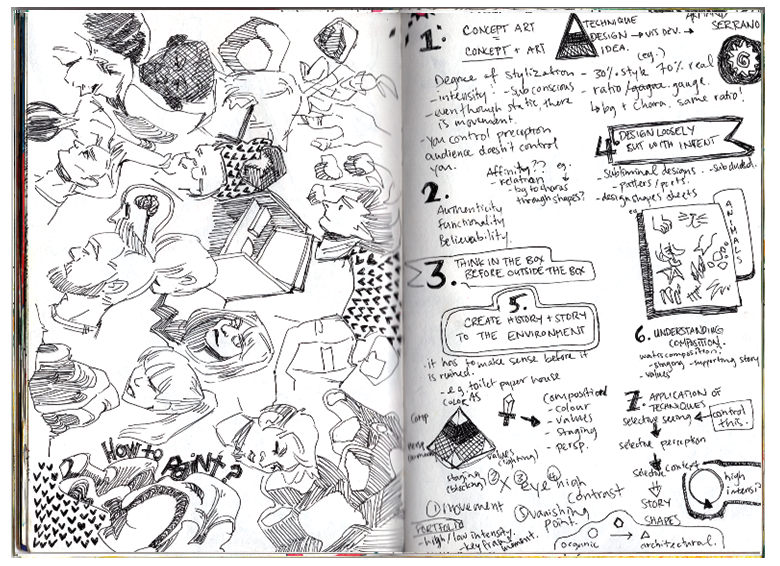 HOW to PAINT?
1. CONCEPT ART
CONCEPT + ART
TECHNIQUE
DESIGN → VIS DEV. →
IDEA.
SERRANO
Degree of stylization
- intensity! - subconscious
- even though static there
is movement.
- You control perception
audience doesn't control
you.
(eg.)
- 30% style 70% real
- ratio/ gauge.
↳ bg + chara. same ratio!
Affinity?? eg.
- relation
bg to charas
through shapes?
2.
Authenticity
functionality
Believability.
3. THINK IN THE BOX
BEFORE OUTSIDE THE BOX
4. DESIGN LOOSELY
BUT WITH INTENT
- Subliminal designs. - subdued.
- design shapes sheets
eg.
ANIMALS
5.
CREATE HISTORY + STORY
TO THE ENVIRONMENT
- it has to make sense before it
is ruined.
- e.g. toilet paper house
6. UNDERSTANDING
COMPOSITION.
- staging - supporting story
- values
COLOR
Comp
values
(lighting)
staging
Composition
- colour
- values
- staging
- persp.
7. APPLICATION OF
TECHNIQUES
selective seeing ← control
this.
selective perception
selective context
STORY
SHAPES
high
intensi
① movement
② X ③ eye ④ high
contrast
⑤ vanishing
point.
PORTFOLIO
- high/low intensity.
organic → architectural.